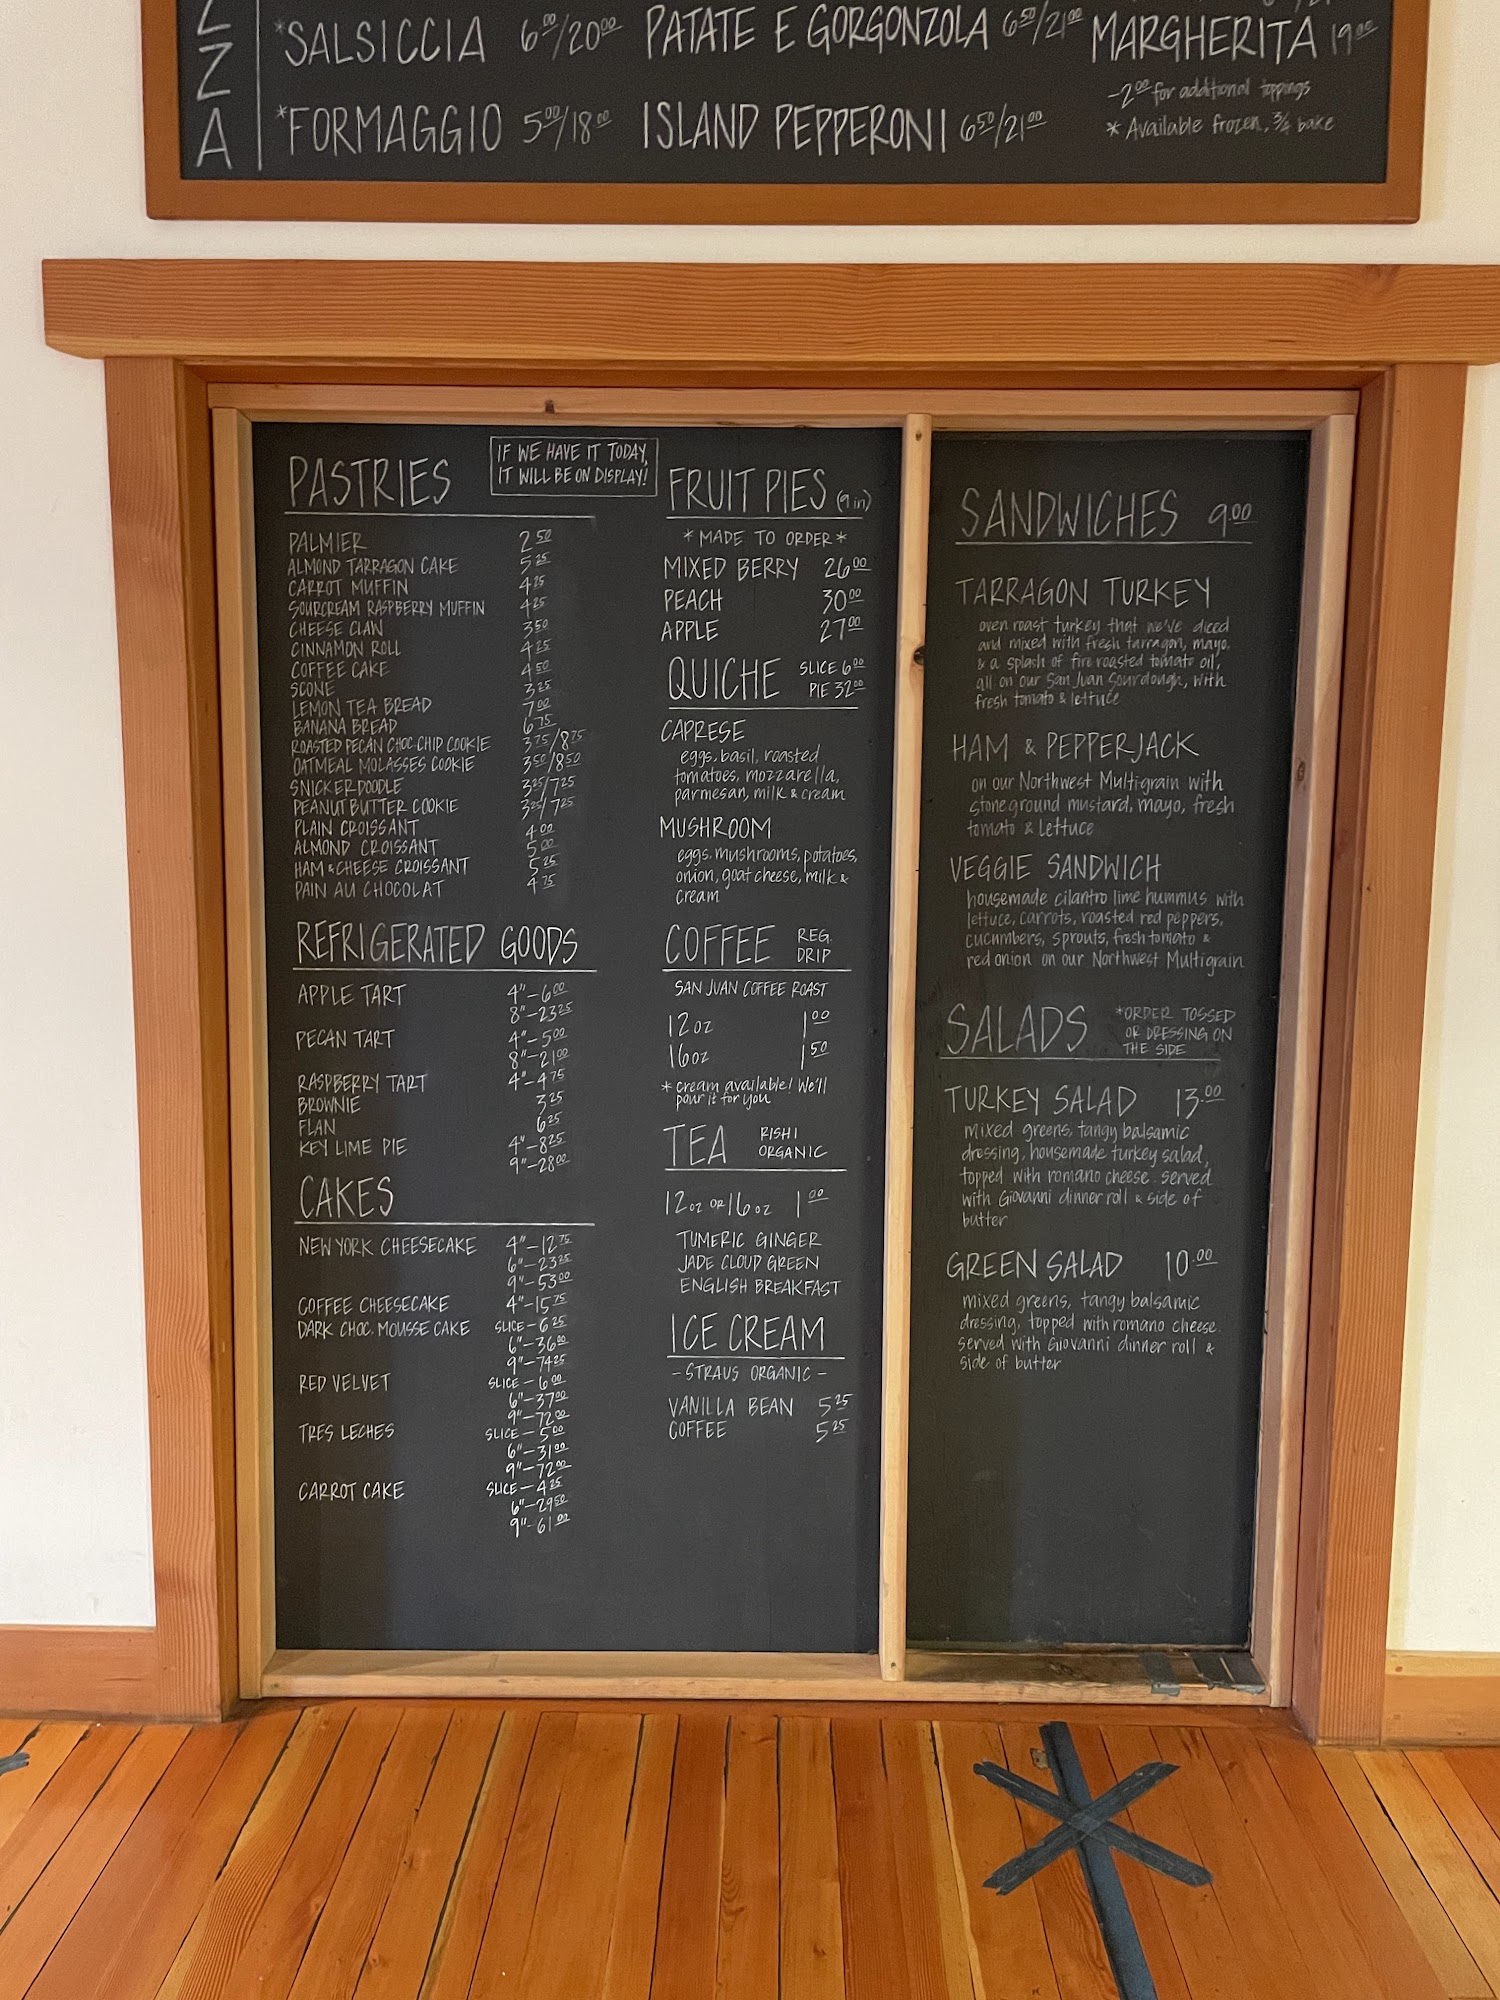 ZZA
*SALSICCIA 6.00/20.00
PATATE E GORGONZOLA 6.50/21.00
MARGHERITA 19.00
-2.00 for additional toppings
*FORMAGGIO 5.00/18.00
ISLAND PEPPERONI 6.50/21.00
* Available frozen, 3/4 bake
PASTRIES
IF WE HAVE IT TODAY,
IT WILL BE ON DISPLAY!
PALMIER 2.50
ALMOND TARRAGON CAKE 5.25
CARROT MUFFIN 4.25
SOURCREAM RASPBERRY MUFFIN 4.25
CHEESE CLAW 3.50
CINNAMON ROLL 4.25
COFFEE CAKE 4.50
SCONE 3.25
LEMON TEA BREAD 7.00
BANANA BREAD 6.75
ROASTED PECAN CHOC-CHIP COOKIE 3.75/8.75
OATMEAL MOLASSES COOKIE 3.50/8.50
SNICKERDOODLE 3.25/7.25
PEANUT BUTTER COOKIE 3.25/7.25
PLAIN CROISSANT 4.00
ALMOND CROISSANT 5.00
HAM & CHEESE CROISSANT 5.25
PAIN AU CHOCOLAT 4.75
REFRIGERATED GOODS
APPLE TART 4"-6.00
8"-23.25
PECAN TART 4"-5.00
8"-21.00
RASPBERRY TART 4"-4.75
BROWNIE 3.25
FLAN 6.25
KEY LIME PIE 4"-8.25
9"-28.00
CAKES
NEW YORK CHEESECAKE 4"-12.75
6"-23.25
9"-53.00
COFFEE CHEESECAKE 4"-15.75
DARK CHOC. MOUSSE CAKE SLICE-6.25
6"-36.00
9"-74.25
RED VELVET SLICE-6.00
6"-37.00
9"-72.00
TRES LECHES SLICE-5.00
6"-31.00
9"-72.00
CARROT CAKE SLICE-4.25
6"-29.50
9"-61.00
FRUIT PIES (9 in)
*MADE TO ORDER*
MIXED BERRY 26.00
PEACH 30.00
APPLE 27.00
QUICHE SLICE 6.00
PIE 32.00
CAPRESE
eggs, basil, roasted
tomatoes, mozzarella,
parmesan, milk & cream
MUSHROOM
eggs, mushrooms, potatoes,
onion, goat cheese, milk &
cream
COFFEE REG.
DRIP
SAN JUAN COFFEE ROAST
12oz 1.00
16oz 1.50
* cream available! We'll
pour it for you
TEA RISHI
ORGANIC
12oz OR 16oz 1.00
TUMERIC GINGER
JADE CLOUD GREEN
ENGLISH BREAKFAST
ICE CREAM
-STRAUS ORGANIC-
VANILLA BEAN 5.25
COFFEE 5.25
SANDWICHES 9.00
TARRAGON TURKEY
oven roast turkey that we've diced
and mixed with fresh tarragon, mayo,
& a splash of fire roasted tomato oil,
all on our San Juan Sourdough, with
fresh tomato & lettuce
HAM & PEPPERJACK
on our Northwest Multigrain with
stoneground mustard, mayo, fresh
tomato & lettuce
VEGGIE SANDWICH
housemade cilantro lime hummus with
lettuce, carrots, roasted red peppers,
cucumbers, sprouts, fresh tomato &
red onion on our Northwest Multigrain
SALADS *ORDER TOSSED
OR DRESSING ON
THE SIDE
TURKEY SALAD 13.00
mixed greens, tangy balsamic
dressing, housemade turkey salad,
topped with romano cheese. served
with Giovanni dinner roll & side of
butter
GREEN SALAD 10.00
mixed greens, tangy balsamic
dressing, topped with romano cheese.
served with Giovanni dinner roll &
side of butter